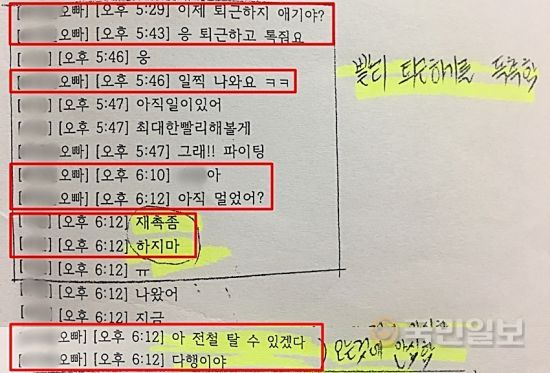 오빠] [오후 5:29] 이제 퇴근하지 애기야?
오빠] [오후 5:43] 응 퇴근하고 톡줘요
[ ] [오후 5:46] 응
[ 오빠] [오후 5:46] 일찍 나와요 ㅋㅋ
[ ] [오후 5:47] 아직일이있어
[ ] [오후 5:47] 최대한빨리해볼게
[ 오빠] [오후 5:47] 그래!! 파이팅
[ 오빠] [오후 6:10] 아
[ 오빠] [오후 6:12] 아직 멀었어?
[ ] [오후 6:12] 재촉좀
[ ] [오후 6:12] 하지마
[ ] [오후 6:12] ㅠ
[ ] [오후 6:12] 나왔어
[ ] [오후 6:12] 지금
오빠] [오후 6:12] 아 전철 탈 수 있겠다
오빠] [오후 6:12] 다행이야
빨리 퇴근하기를 독촉함
안심함
국민일보